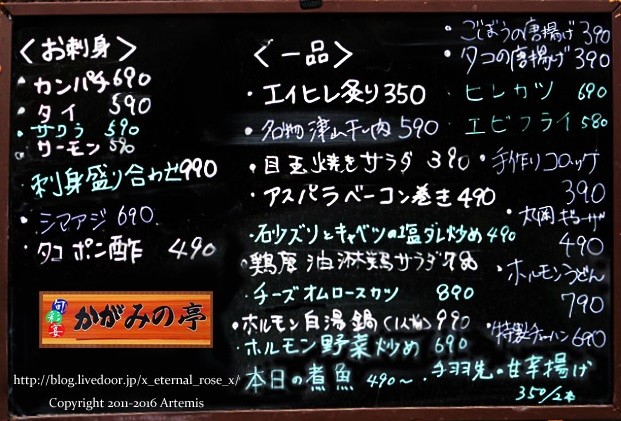 <お刺身>
・カンパチ 690
・タイ 590
・サワラ 590
・サーモン 590
・刺身盛り合わせ 990
・シマアジ 690
・タコポン酢 490
旬彩宴 かがみの亭
http://blog.livedoor.jp/x_eternal_rose_x/
Copyright 2011-2016 Artemis
<一品>
・エイヒレ炙り 350
・名物津山干し肉 590
・目玉焼きサラダ 390
・アスパラベーコン巻き 490
・砂ズリとキャベツの塩ダレ炒め 490
・鶏唐油淋鶏サラダ 780
・チーズオムロースカツ 890
・ホルモン白湯鍋(1人前) 990
・ホルモン野菜炒め 690
・本日の煮魚 490〜
・ごぼうの唐揚げ 390
・タコの唐揚げ 390
・ヒレカツ 690
・エビフライ 580
・手作りコロッケ
390
・ギョーザ
490
・ホルモンうどん
790
・特製チャーハン 690
・手羽先の甘辛揚げ
350/2本